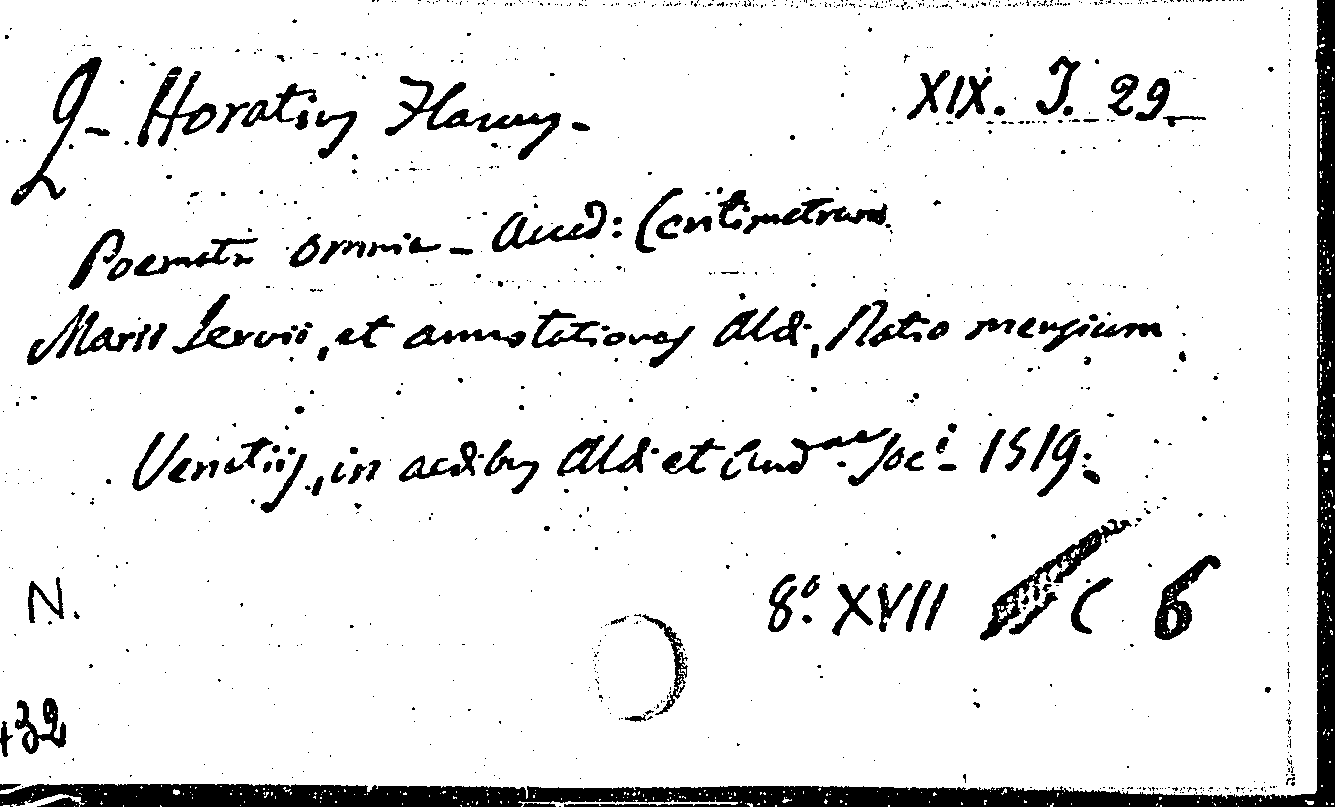 Q- Horatius Flaccus- XIX. J. 29
Poemata omnia - Acced: Centimetrum
Marii Servii, et annotationes Aldi, Ratio mensium
Venetiis, in aedibus Aldi et And.ae Soc.i - 1519.
N. 8.o XVII C 6
432